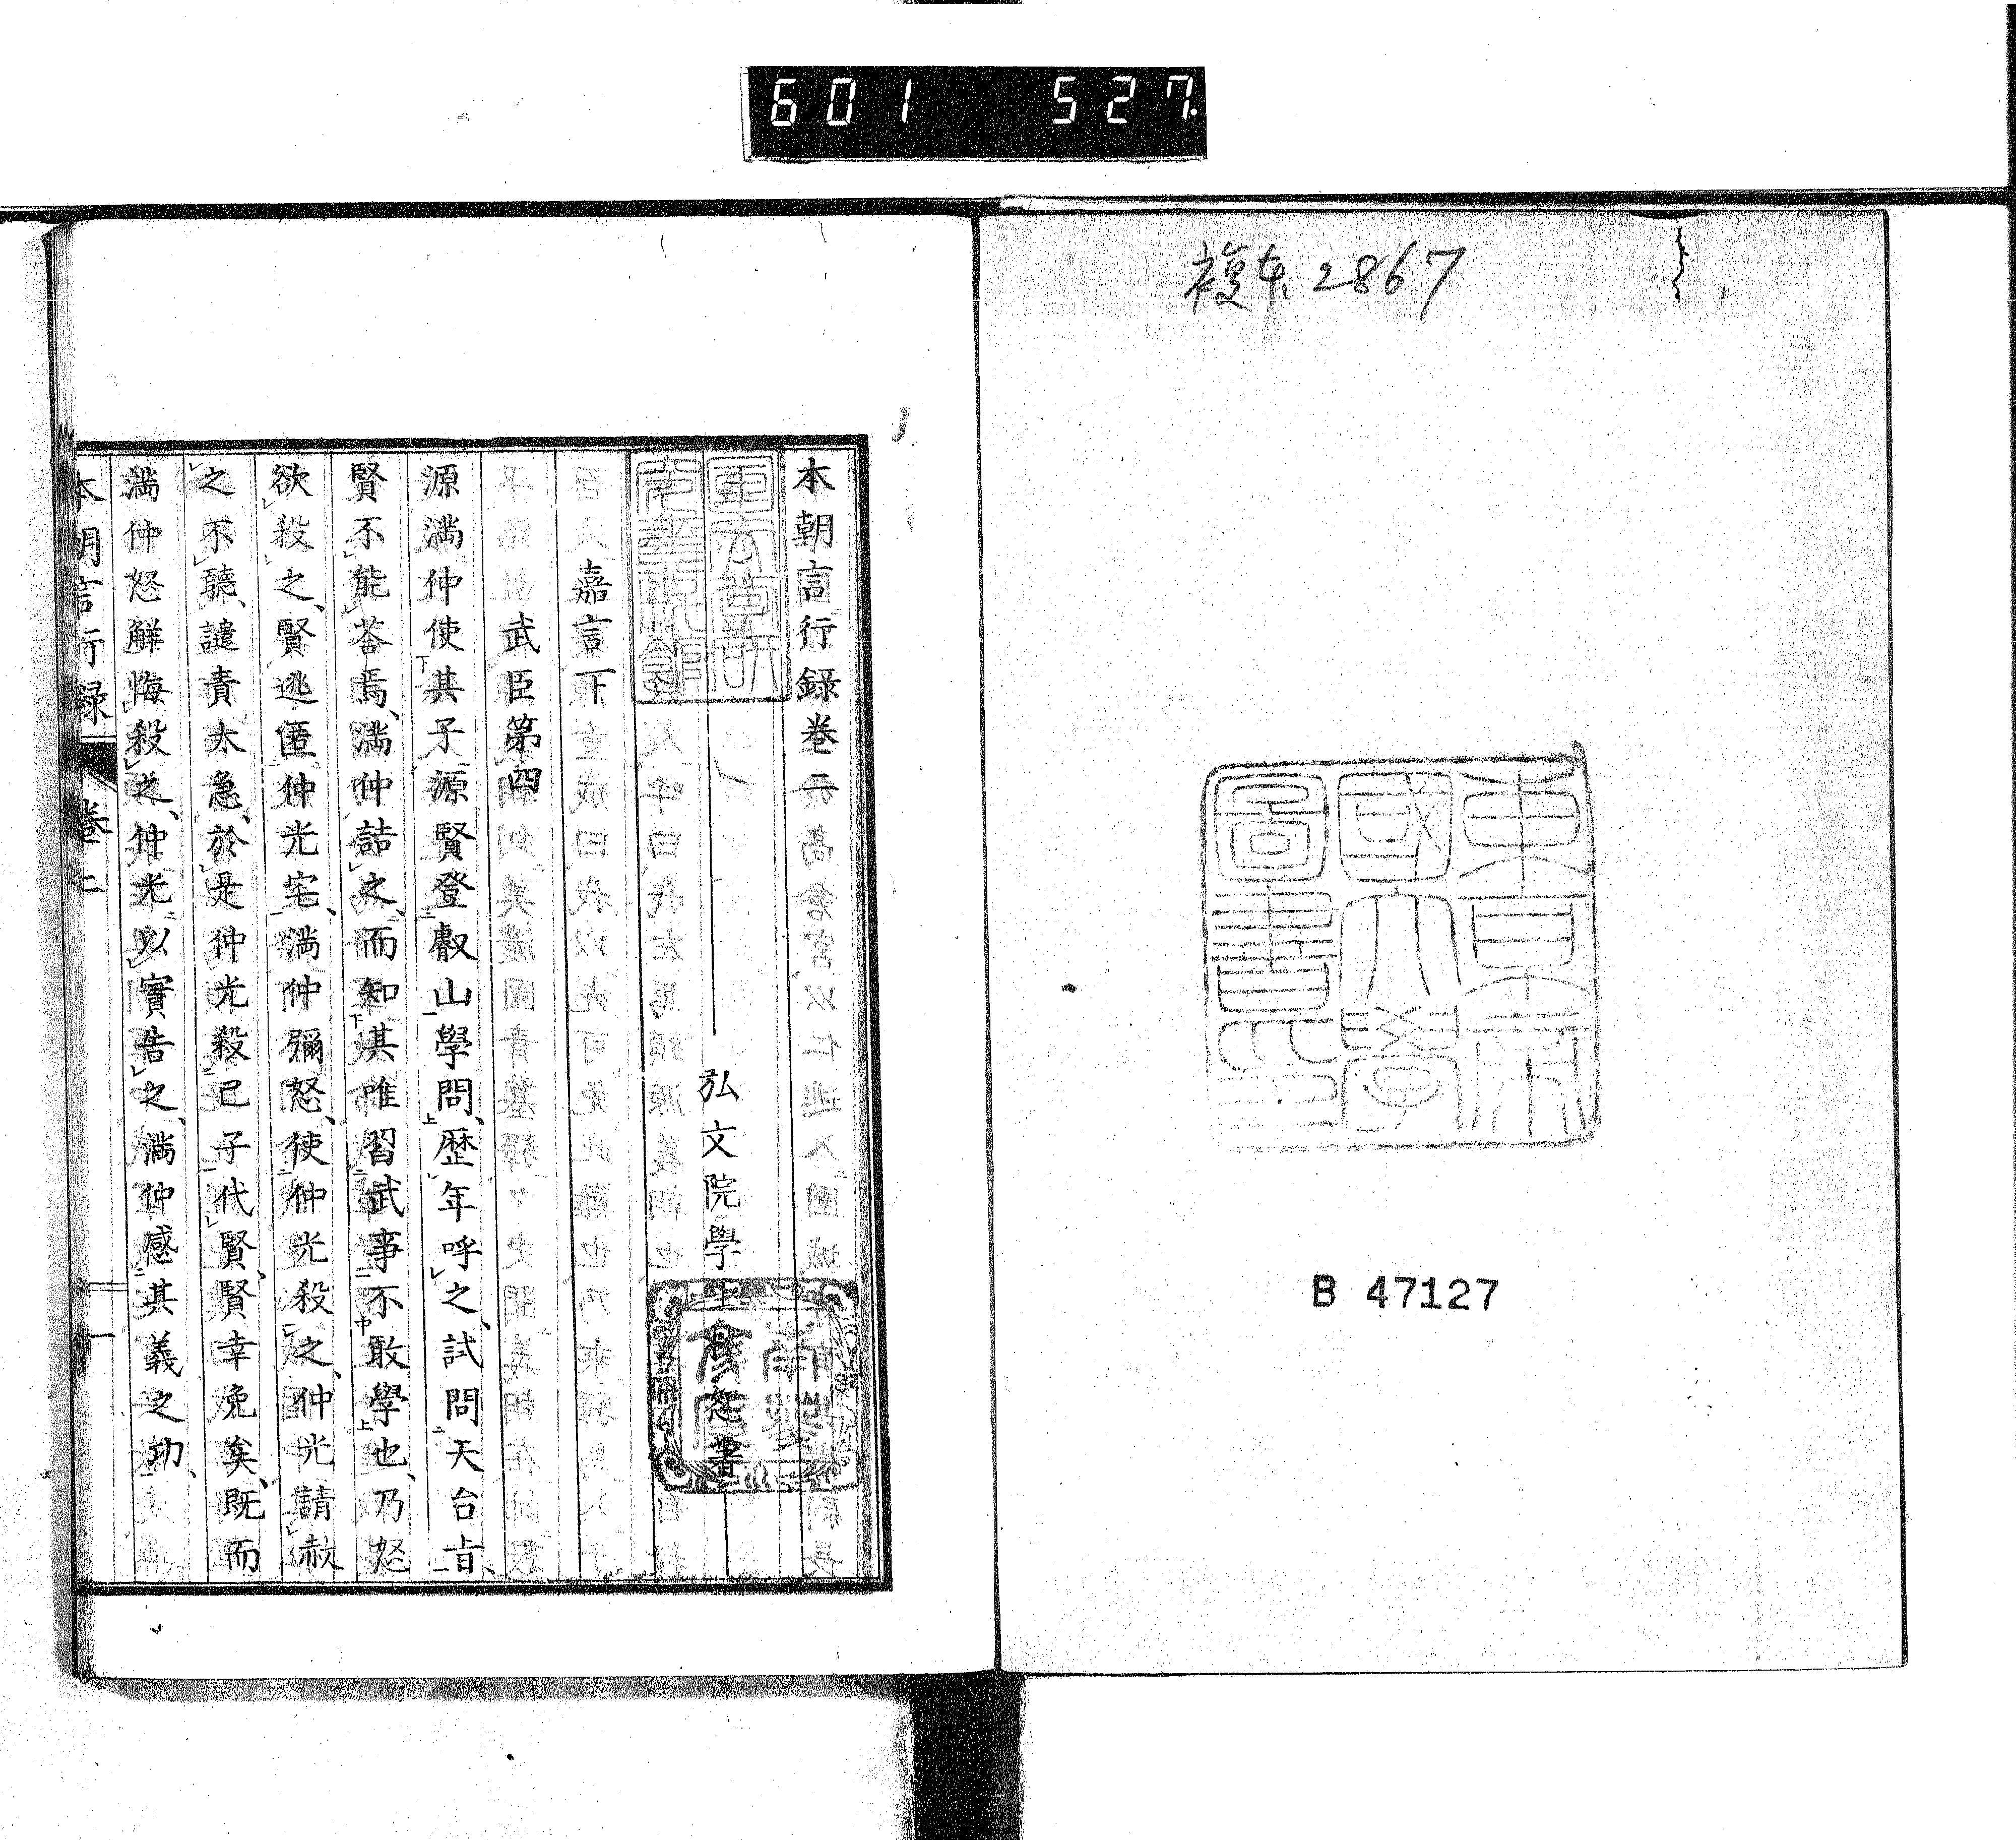 601 527.
複本 2867
東京帝國大學圖書印
B 47127
本朝言行錄卷二
弘文院學士林恕著
嘉言下
武臣第四
源満仲使其子源賢登叡山學問、歷年呼之、試問天台旨、
賢不能荅焉、満仲詰之、而知其唯習武事不敢學也、乃怒
欲殺之、賢逃匿仲光宅、満仲彌怒、使仲光殺之、仲光請赦
之不聽、譴責太急、於是仲光殺已子代賢、賢幸免矣、既而
満仲怒解悔殺之、仲光以實告之、満仲感其義之功、
本朝言行録 卷上 一